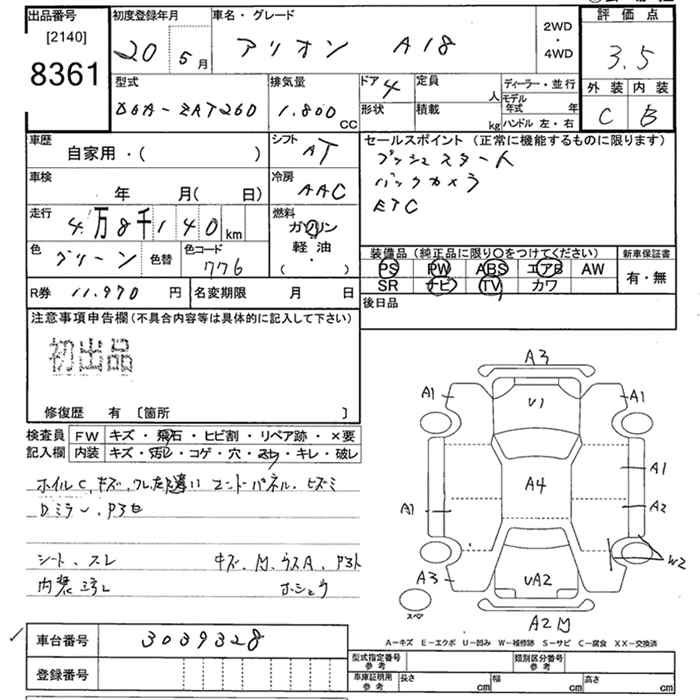 出品番号
[2140]
8361
初度登録年月
20 5月
車名・グレード
アリオン A18
2WD
・
4WD
評価点
3.5
外装 内装
C B
型式
DBA-ZRT260
排気量
1.800 CC
ドア 4
形状
定員 人
積載 kg
ディーラー・並行
モデル年式 年
ハンドル 左・右
車歴
自家用・( )
シフト
AT
車検
年 月( 日)
冷房
AAC
走行
4万8千140 km
燃料
ガソリン
軽油・
( ・ )
色
グリーン
色替
色コード
776
R券 11.970 円
名変期限 月 日
セールスポイント (正常に機能するものに限ります)
プッシュスタート
バックカメラ
ETC
装備品 (純正品に限り○をつけてください)
PS PW ABS エアB AW
SR ナビ TV カワ
新車保証書
有・無
後日品
注意事項申告欄(不具合内容等は具体的に記入して下さい)
初出品
修復歴 有 〔箇所 〕
検査員記入欄
FW キズ・飛石・ヒビ割・リペア跡・×要
内装 キズ・汚レ・コゲ・穴・スレ・キレ・破レ
ホイルC、キズ、
エンドパネル、ヒズミ
Dミラー、
シート、スレ
内装ヨゴレ
キズ、
ホシュウ
A3
A1
A1
V1
A1
A4
A2
A1
W2
A3
UA2
スペア
A2
A-キズ E-エクボ U-凹み W-補修跡 S-サビ C-腐食 XX-交換済
車台番号 3039328
登録番号
型式指定番号
参考
類別区分番号
参考
車庫証明用
参考
長さ cm
幅 cm
高さ cm